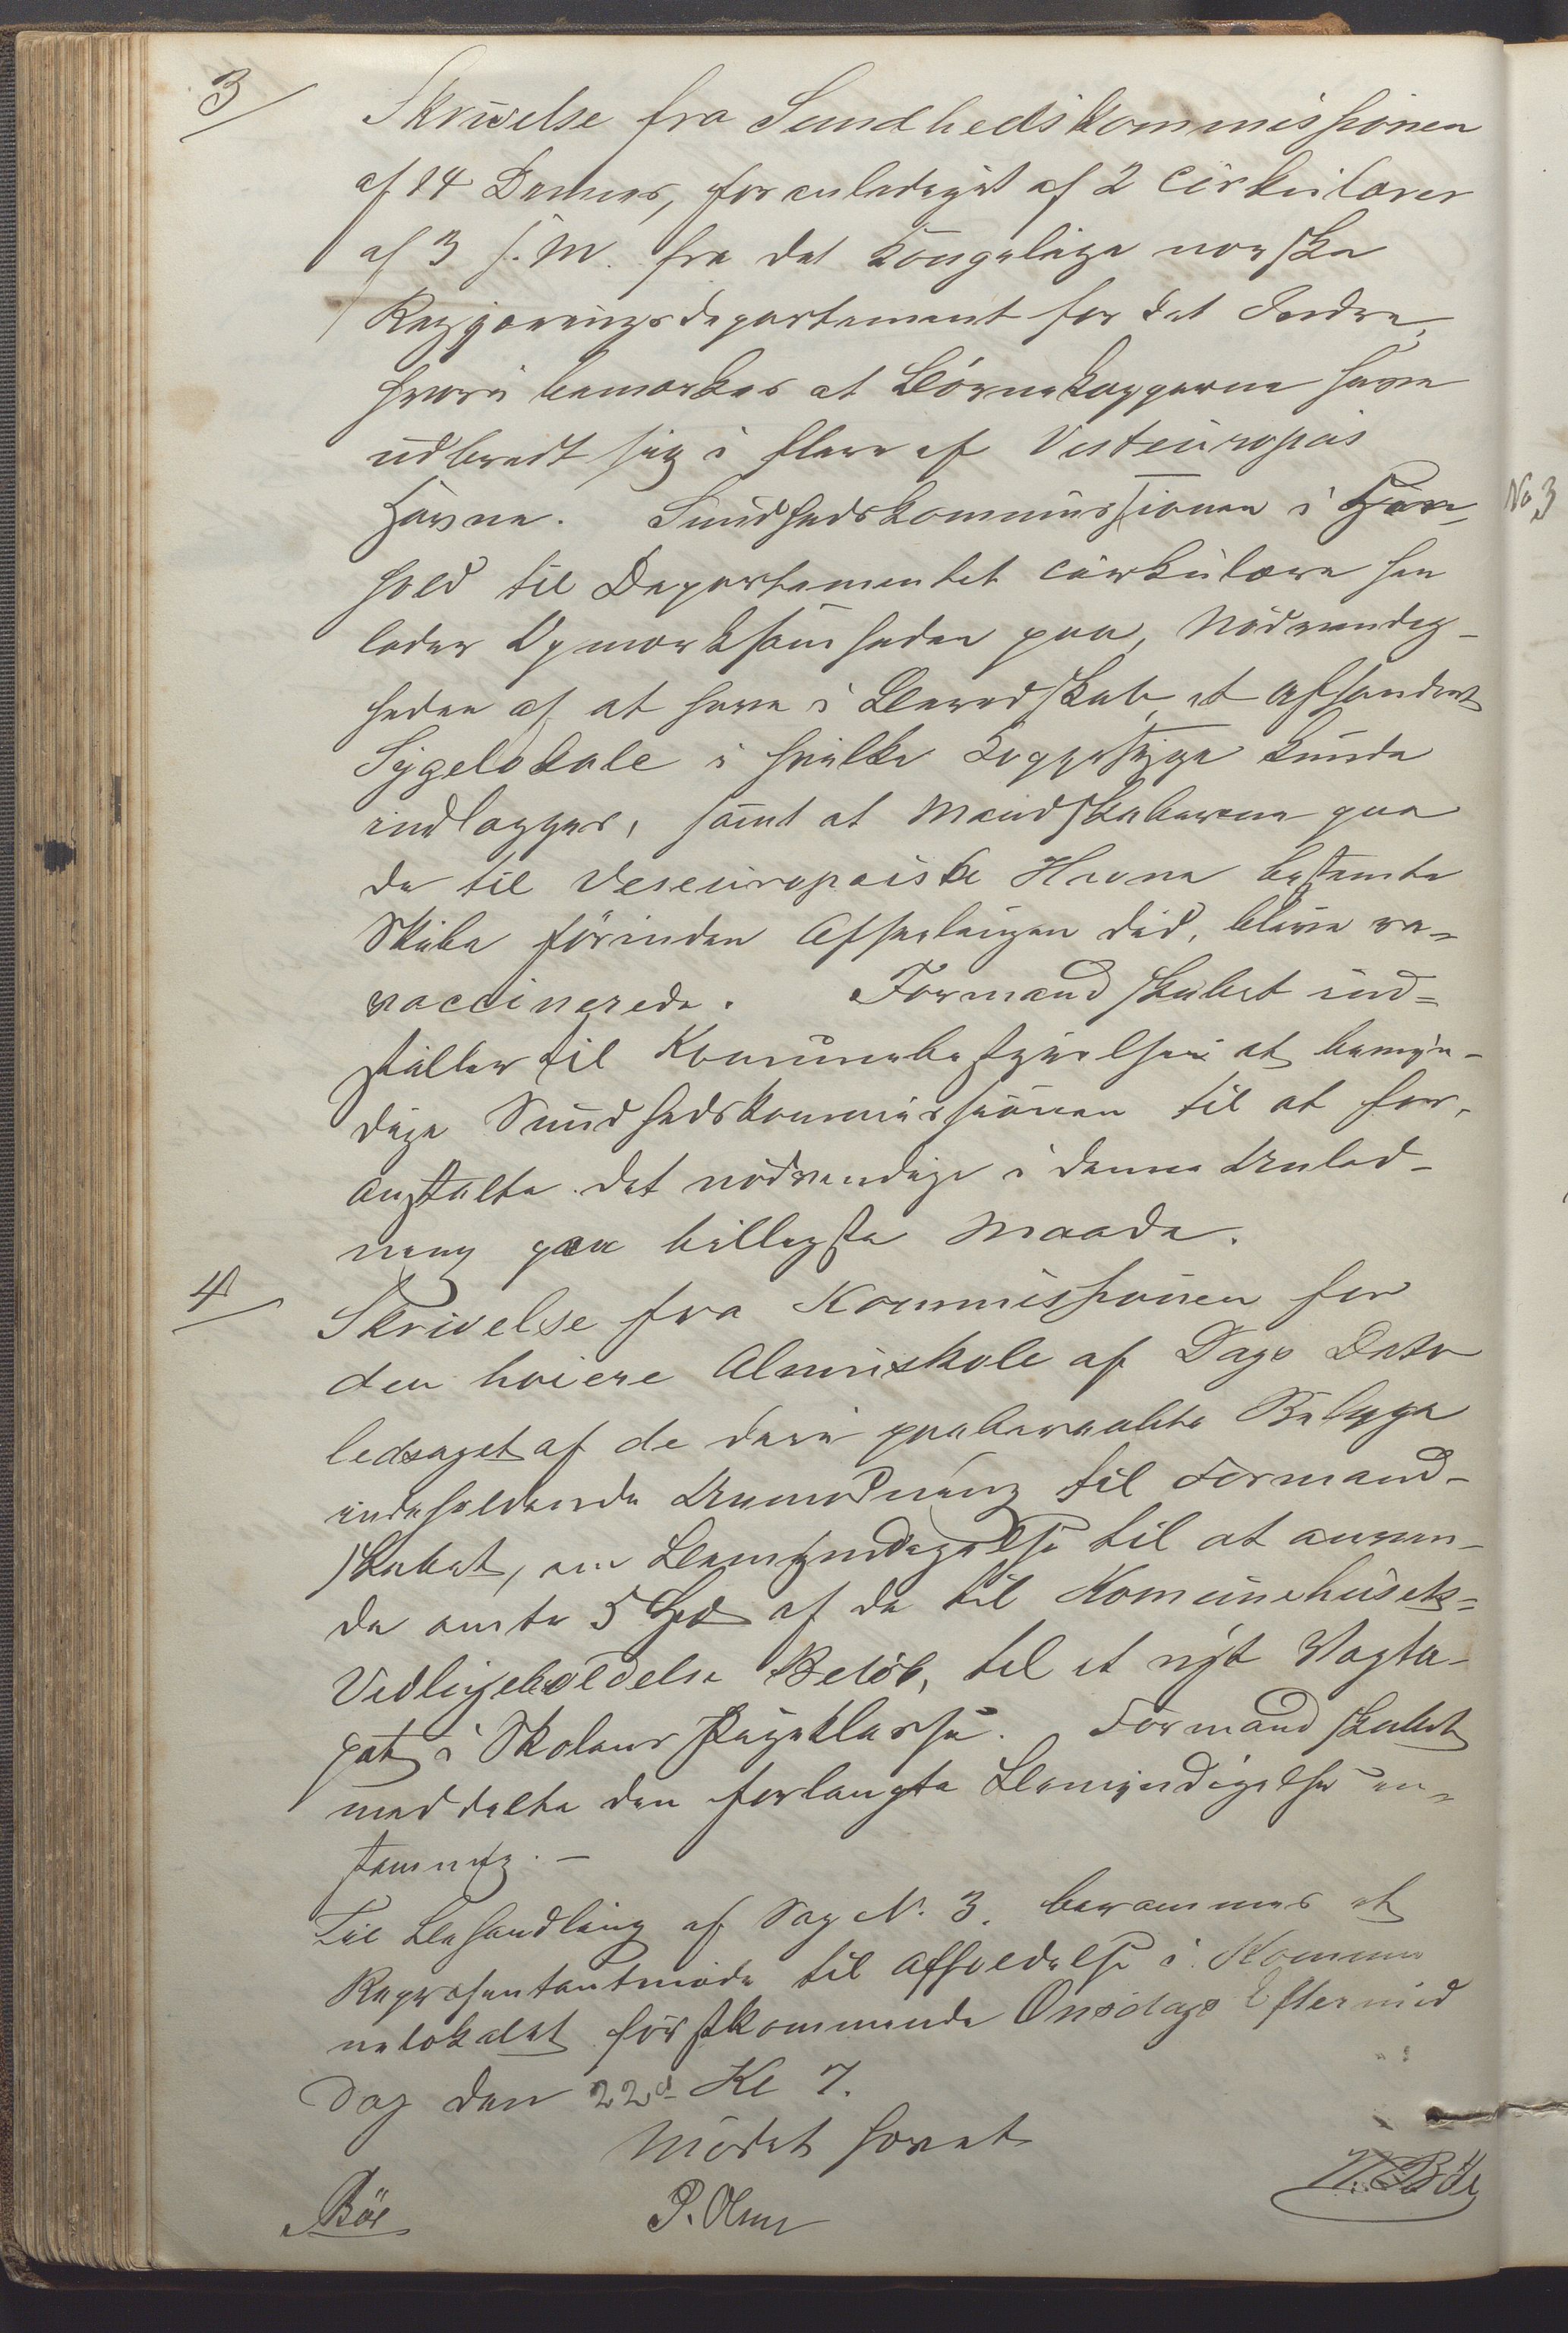 3/
Skrivelse fra Sundhedskommissionen
af 14 Dennes, foranlediget af 2 Cirkulærer
af 3 s. M. fra det kongelige norske
Regjeringsdepartement for det Indre,
hvori bemærkes at Børnekopperne have
udbredt sig i flere af Vesteuropas
Havne. Sundhedskommissionen i Hen-
No 3
hold til Departementet Cirkulære hen
leder Opmærksomheden paa, Nødvendig-
heden af at have i Beredskab et afsondret
Sygelokale i hvilke Koppesyge kunde
indlægges, samt at Mandskaberne paa
de til Vesteuropæiske Havne bestemte
Skibe förinden Afseilingen did, blive re-
vaccinerede. Formandskabet ind-
stiller til Kommunebestyrelsen at bemyn-
dige Sundhedskommissionen til at for-
anstalte det nødvendige i denne Anled-
ning paa billigste Maade.
4/
Skrivelse fra Kommissionen for
den høiere Almuskole af Dags Dato
ledsaget af de deri paaberaabte Bilage
indeholdende Anmodning til Formand-
skabet, om Bemyndigelse til at anven-
de omtr 5 Spd af de til Kommunehusets-
Vedligeholdelse Beløb, til et nyt Vægta-
pet i Skolens Pigeklasse. Formandskabet
meddelte den forlangte Bemyndigelse en-
stemmig. –
Til Behandling af Sag N. 3. berammes et
Repræsentantmøde til Afholdelse i Kommu
nelokalet førstkommende Onsdags Eftermid
dag den 22d Kl 7.
Mødet hævet
Bøe
P. Olsen